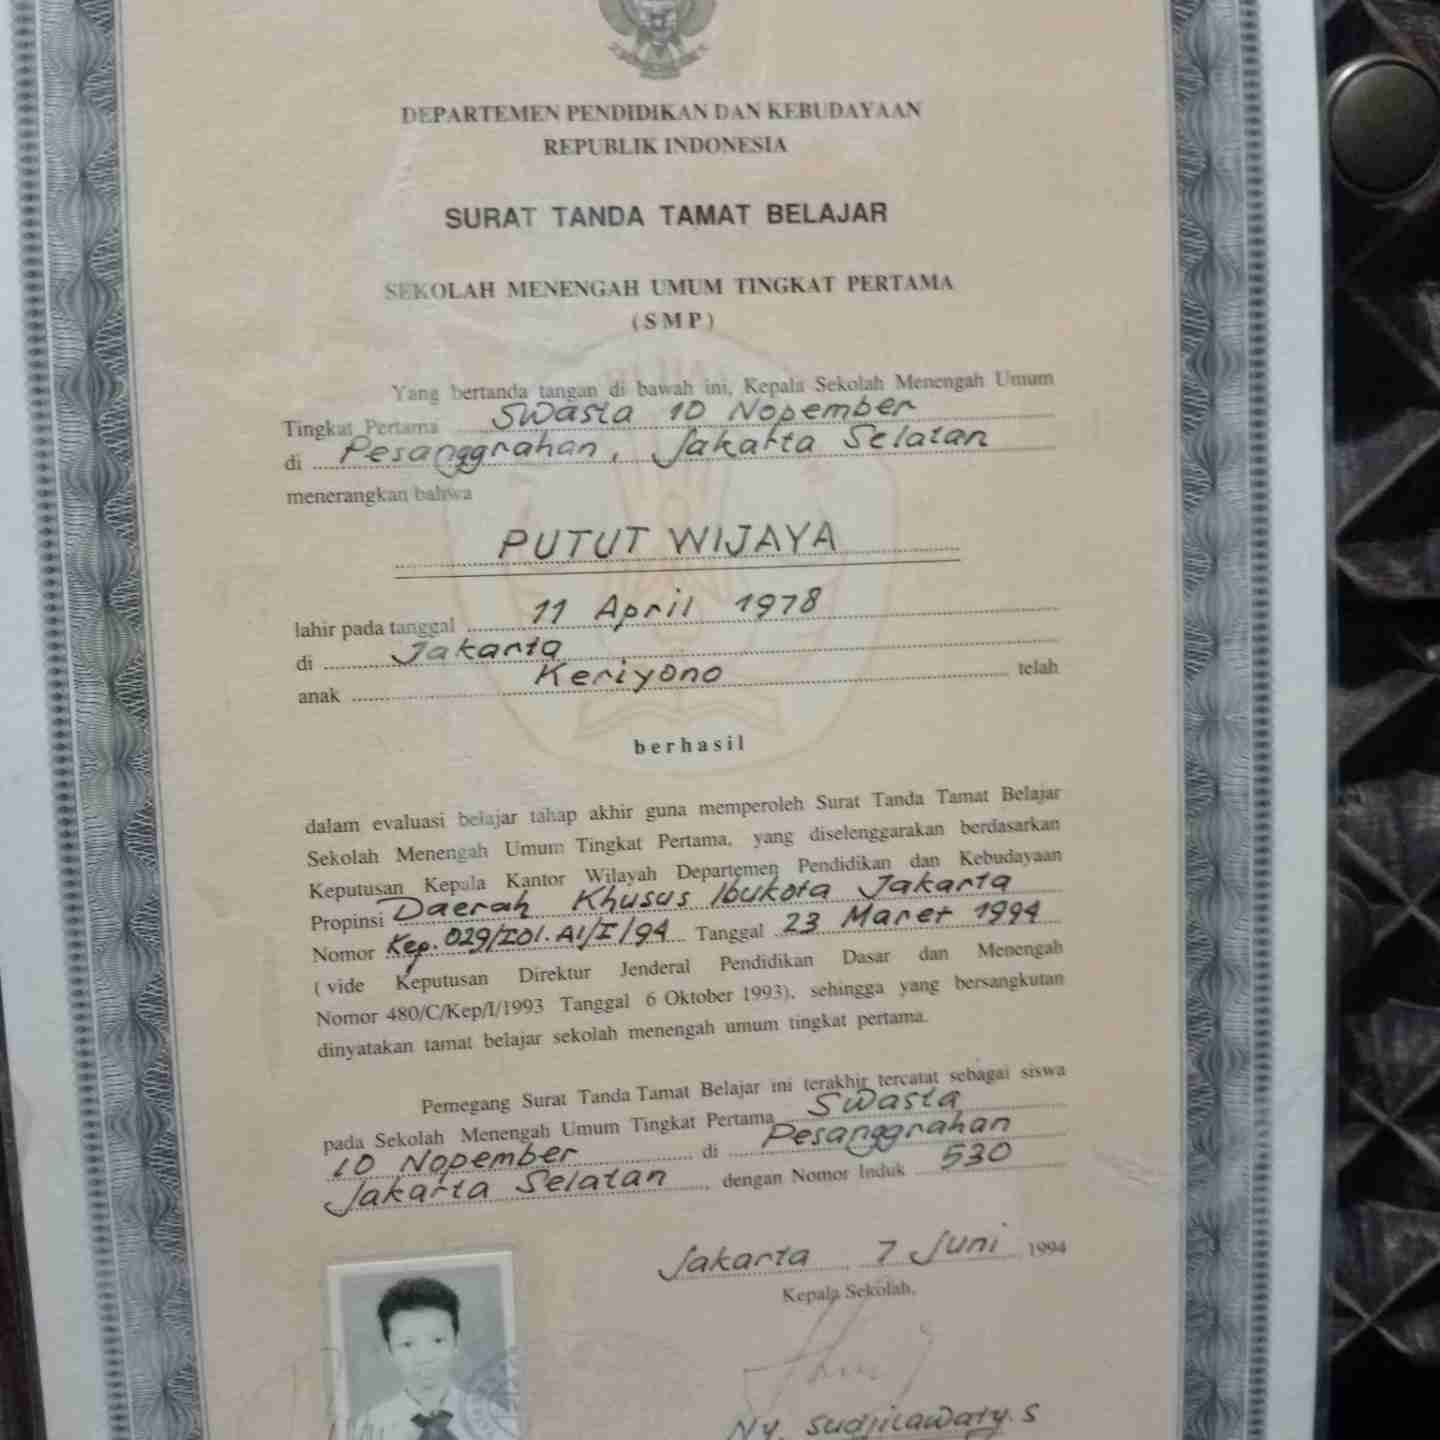 DEPARTEMEN PENDIDIKAN DAN KEBUDAYAAN
REPUBLIK INDONESIA
SURAT TANDA TAMAT BELAJAR
SEKOLAH MENENGAH UMUM TINGKAT PERTAMA
(SMP)
Yang bertanda tangan di bawah ini, Kepala Sekolah Menengah Umum
Tingkat Pertama Swasta 10 Nopember
di Pesanggrahan, Jakarta Selatan
menerangkan bahwa
PUTUT WIJAYA
lahir pada tanggal 11 April 1978
di Jakarta
anak Keriyono telah
berhasil
dalam evaluasi belajar tahap akhir guna memperoleh Surat Tanda Tamat Belajar
Sekolah Menengah Umum Tingkat Pertama, yang diselenggarakan berdasarkan
Keputusan Kepala Kantor Wilayah Departemen Pendidikan dan Kebudayaan
Propinsi Daerah Khusus Ibukota Jakarta
Nomor Kep. 029/I01.A1/I/94 Tanggal 23 Maret 1994
( vide Keputusan Direktur Jenderal Pendidikan Dasar dan Menengah
Nomor 480/C/Kep/I/1993 Tanggal 6 Oktober 1993), sehingga yang bersangkutan
dinyatakan tamat belajar sekolah menengah umum tingkat pertama.
Pemegang Surat Tanda Tamat Belajar ini terakhir tercatat sebagai siswa
pada Sekolah Menengah Umum Tingkat Pertama Swasta
10 Nopember di Pesanggrahan
Jakarta Selatan, dengan Nomor Induk 530
Jakarta, 7 Juni 1994
Kepala Sekolah,
NY. Sudjilawaty. S